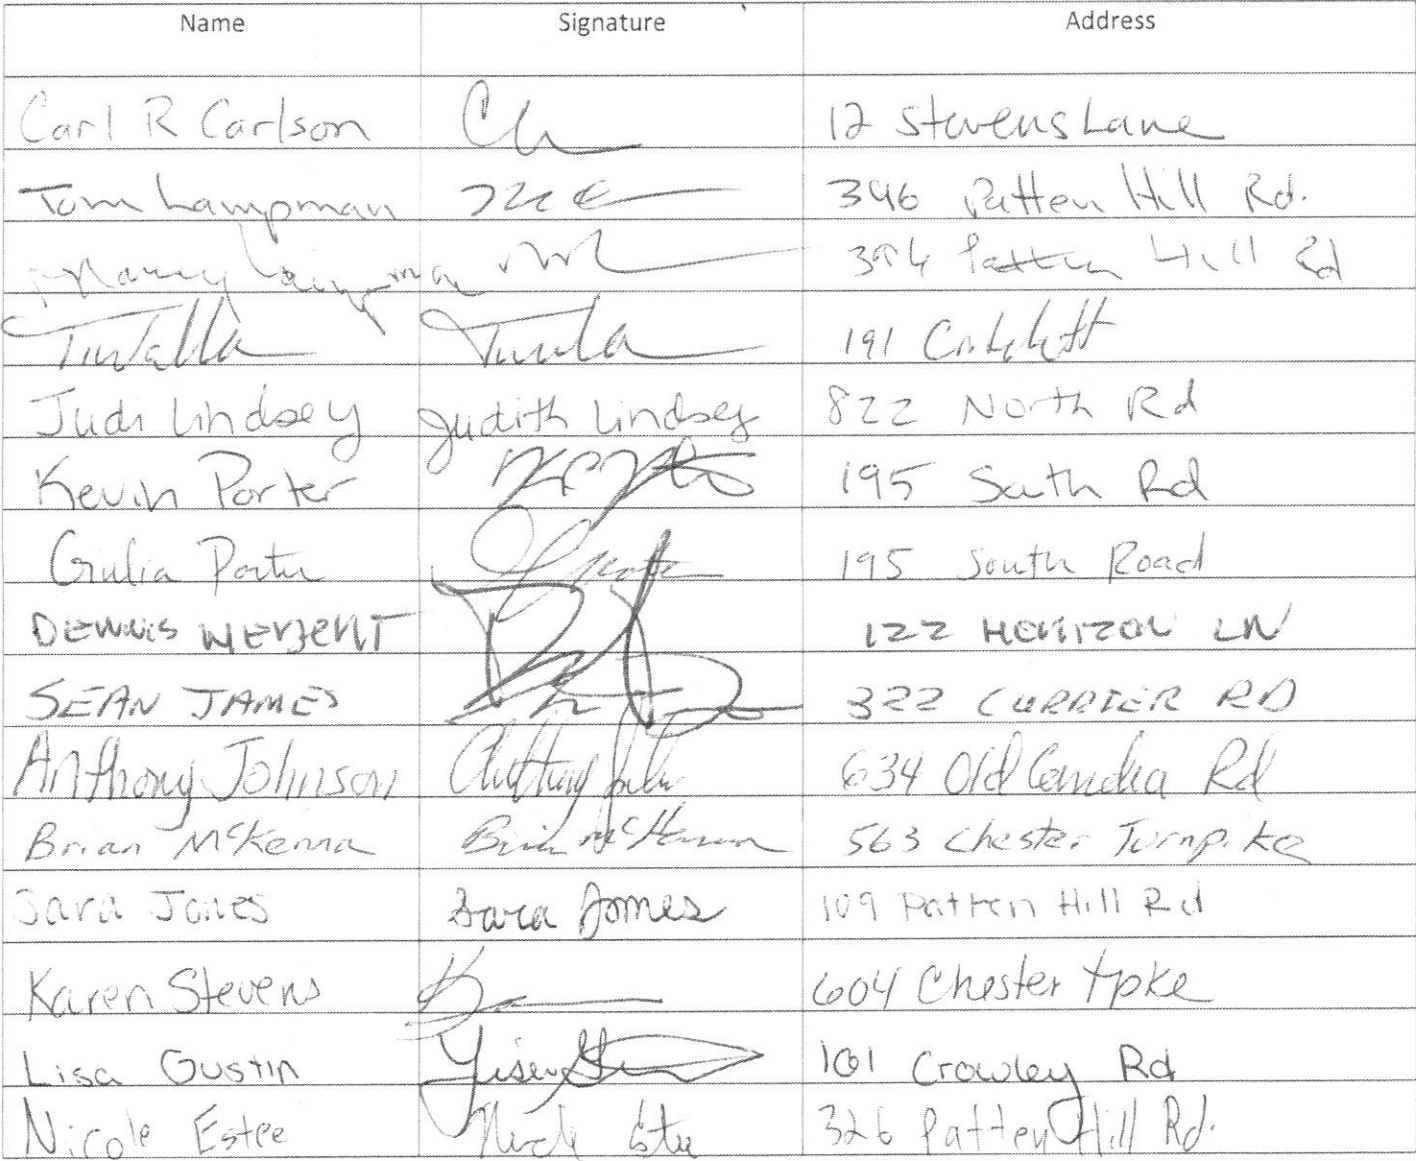 Name Signature Address
Carl R Carlson 12 Stevens Lane
Tom Lampman 396 Patten Hill Rd.
Nancy Lampman 396 Patten Hill Rd
191
Judi Lindsey Judith Lindsey 822 North Rd
Kevin Porter 195 South Rd
Giulia Porter 195 South Road
DENNIS 122 HORIZON LN
SEAN JAMES 322 CURRIER RD
Anthony Johnson Anthony 634 Old Candia Rd
Brian McKenna Brian McKenna 563 Chester Turnpike
Sara Jones Sara Jones 109 Patten Hill Rd
Karen Stevens 604 Chester tpke
Lisa Gustin 101 Crowley Rd
Nicole Estee 326 Patten Hill Rd.